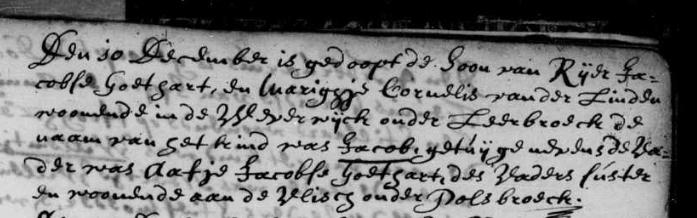 Den 10 December is gedoopt de Soon van Rijer Ja-
cobse Goethart, en Marigje Cornelis vander Linden
woonende in de Weverwijck onder Leerbroeck de
naam van het kind was Jacob, getuijge nevens de Va-
der was Aatje Jacobse Goethart, des Vaders suster
en woonende aan de Vlisch onder Polsbroeck.